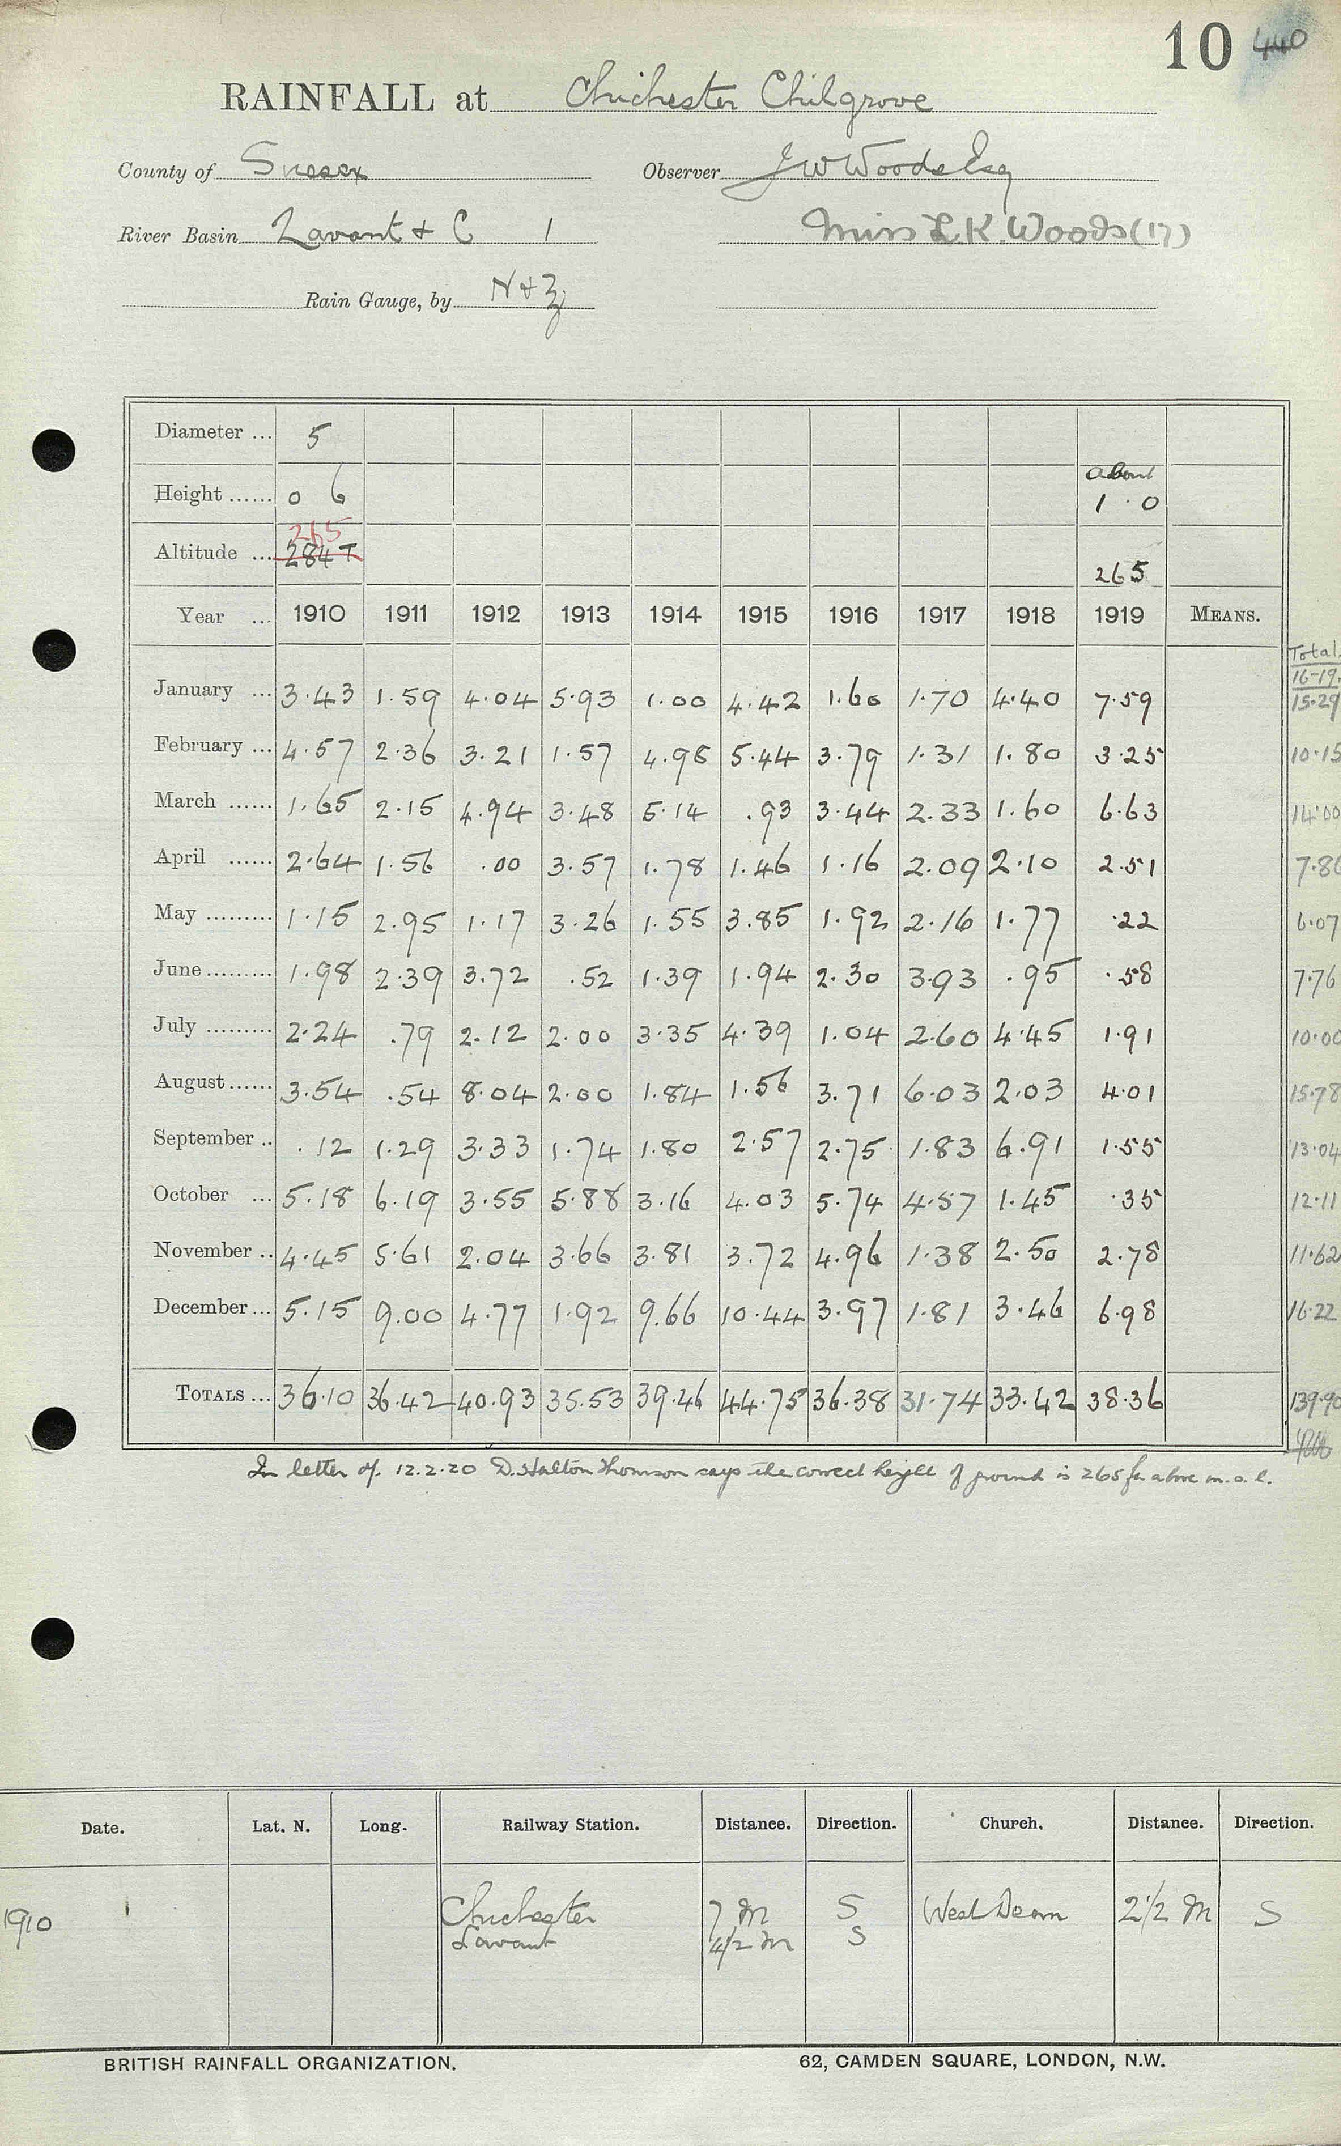 10 440
RAINFALL at Chichester Chilgrove
County of Sussex Observer J W Woods Esq
River Basin Lavant & C 1 Miss L K Woods (17)
Rain Gauge, by N & Z
Diameter ... 5
Height ...... 0 6 about 1.0
Altitude ... 265 284 T 265
Year ... 1910 1911 1912 1913 1914 1915 1916 1917 1918 1919 MEANS.
Total 16-19
January ... 3.43 1.59 4.04 5.93 1.00 4.42 1.60 1.70 4.40 7.59 15.29
February ... 4.57 2.36 3.21 1.57 4.98 5.44 3.79 1.31 1.80 3.25 10.15
March ...... 1.65 2.15 4.94 3.48 5.14 .93 3.44 2.33 1.60 6.63 14.00
April ...... 2.64 1.56 .00 3.57 1.78 1.46 1.16 2.09 2.10 2.51 7.86
May ......... 1.15 2.95 1.17 3.26 1.55 3.85 1.92 2.16 1.77 .22 6.07
June ......... 1.98 2.39 3.72 .52 1.39 1.94 2.30 3.93 .95 .58 7.76
July ......... 2.24 .79 2.12 2.00 3.35 4.39 1.04 2.60 4.45 1.91 10.00
August ...... 3.54 .54 8.04 2.00 1.84 1.56 3.71 6.03 2.03 4.01 15.78
September .. .12 1.29 3.33 1.74 1.80 2.57 2.75 1.83 6.91 1.55 13.04
October ... 5.18 6.19 3.55 5.88 3.16 4.03 5.74 4.57 1.45 .35 12.11
November .. 4.45 5.61 2.04 3.66 3.81 3.72 4.96 1.38 2.50 2.78 11.62
December ... 5.15 9.00 4.77 1.92 9.66 10.44 3.97 1.81 3.46 6.98 16.22
TOTALS ... 36.10 36.42 40.93 35.53 39.46 44.75 36.38 31.74 33.42 38.36 139.90
In letter of 12.2.20 D. Halton Thomson says the correct height of ground is 265 ft above m.s.l.
Date. Lat. N. Long. Railway Station. Distance. Direction. Church. Distance. Direction.
1910 Chichester 7 M S West Dean 2 1/2 M S
Lavant 4 1/2 M S
BRITISH RAINFALL ORGANIZATION. 62, CAMDEN SQUARE, LONDON, N.W.